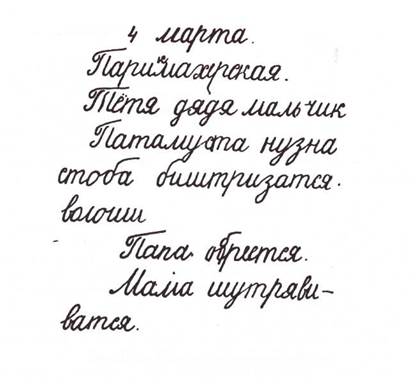 4 марта.
Паримкмахерская.
Тётя дядя мальчик
Патамуста нузна
стоба биштризатся.
волоши
Папа обреется.
Мама шутряви-
ватся.